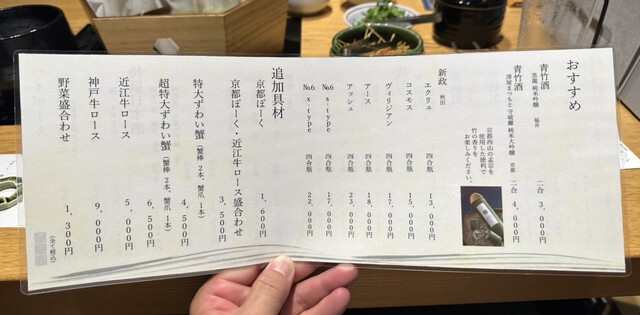 おすすめ
青竹酒 二合 3,000円
黒龍 純米吟醸 福井
青竹酒 二合 4,000円
澤屋まつもと 守破離 純米大吟醸 京都
京都西山の孟宗を
使用した徳利で
竹の香りを
お楽しみください。
新政 秋田
エクリュ 四合瓶 13,000円
コスモス 四合瓶 15,000円
ヴィリジアン 四合瓶 17,000円
アース 四合瓶 18,000円
アッシュ 四合瓶 23,000円
No.6 s-type 四合瓶 17,000円
No.6 x-type 四合瓶 22,000円
追加具材
京都ぽーく 1,600円
京都ぽーく・近江牛ロース盛合わせ 3,500円
特大ずわい蟹(蟹棒2本、蟹爪1本) 4,500円
超特大ずわい蟹(蟹棒2本、蟹爪1本) 6,500円
近江牛ロース 5,000円
神戸牛ロース 9,000円
野菜盛合わせ 1,300円
(全て税込)